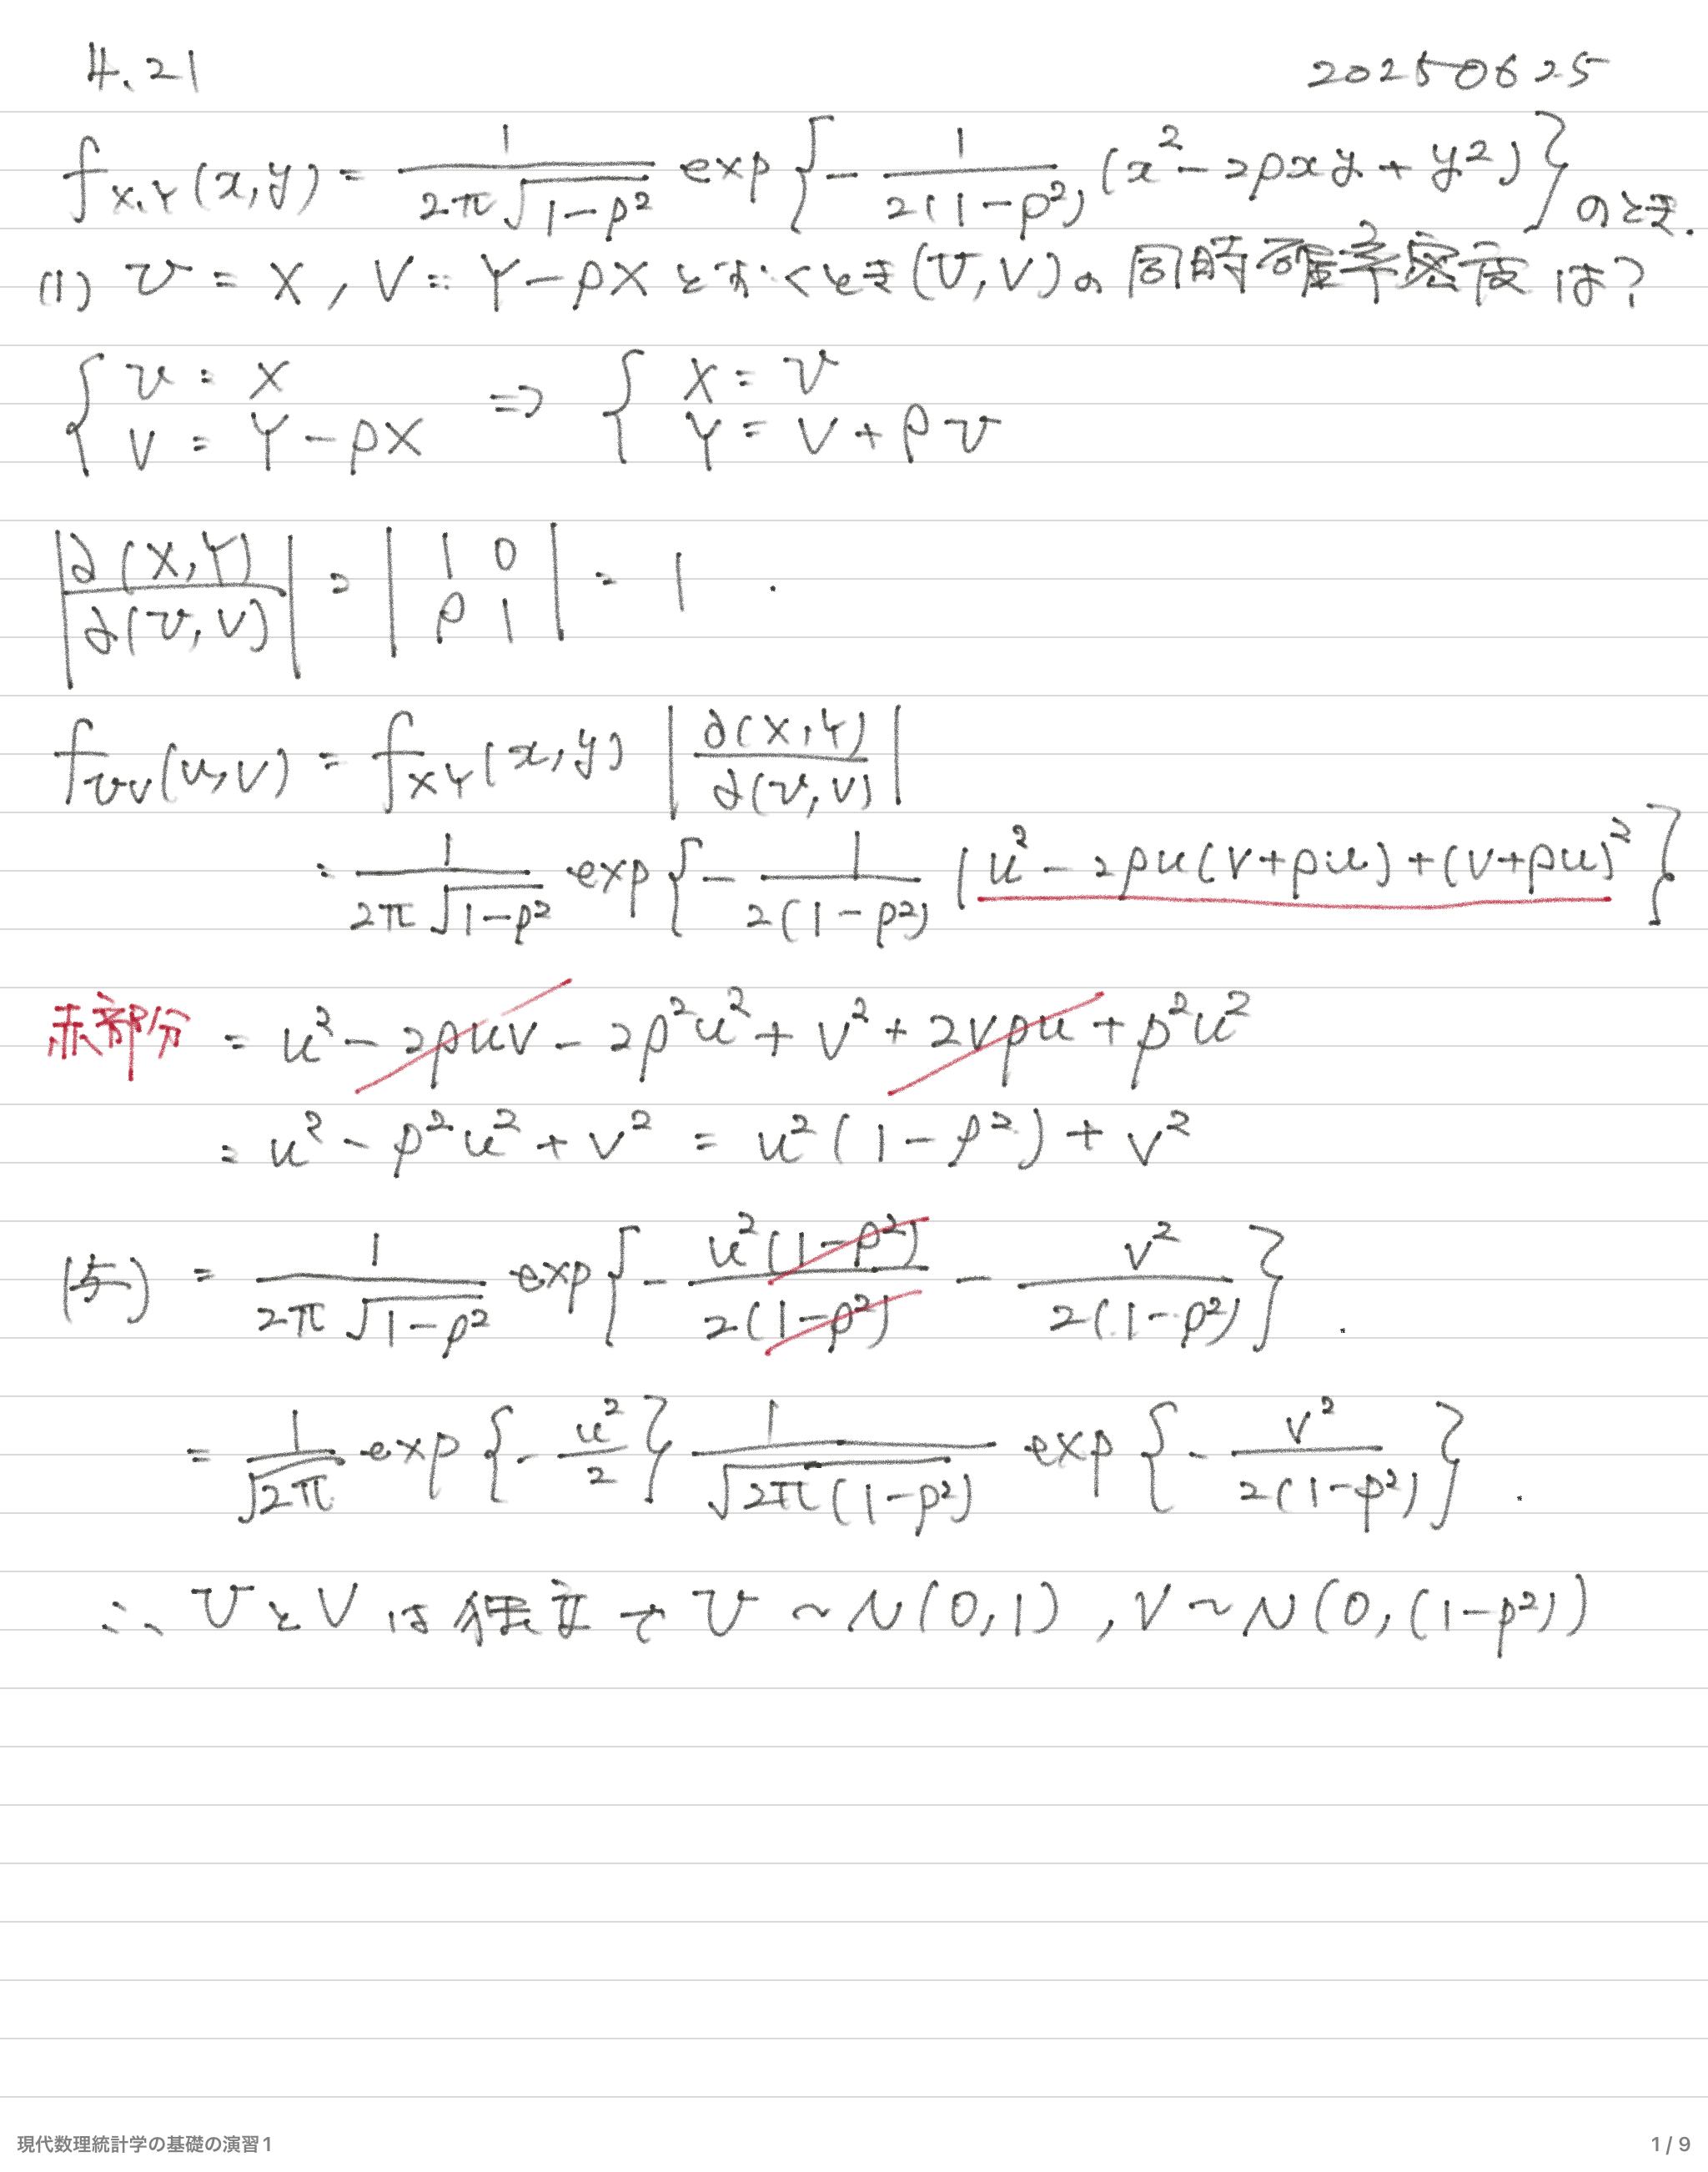 4.21 20250625
f_{X,Y}(x,y) = \frac{1}{2π\sqrt{1-ρ^2}} exp{ -\frac{1}{2(1-ρ^2)} (x^2 - 2ρxy + y^2) } のとき.
(1) U = X, V = Y - ρX とおくとき (U, V) の同時確率密度は?
{ U = X ⇒ { X = U
V = Y - ρX Y = V + ρU
|\frac{∂(X,Y)}{∂(U,V)}| = |1 0 ρ 1| = 1 .
f_{UV}(u,v) = f_{XY}(x,y) |\frac{∂(X,Y)}{∂(U,V)}|
= \frac{1}{2π\sqrt{1-ρ^2}} exp{ -\frac{1}{2(1-ρ^2)} (u^2 - 2ρu(v+ρu) + (v+ρu)^2 }
赤部分 = u^2 - 2ρuv - 2ρ^2u^2 + v^2 + 2vρu + ρ^2u^2
= u^2 - ρ^2u^2 + v^2 = u^2(1-ρ^2) + v^2
(与) = \frac{1}{2π\sqrt{1-ρ^2}} exp{ -\frac{u^2(1-ρ^2)}{2(1-ρ^2)} - \frac{v^2}{2(1-ρ^2)} } .
= \frac{1}{\sqrt{2π}} exp{ -\frac{u^2}{2} } \frac{1}{\sqrt{2π(1-ρ^2)}} exp{ -\frac{v^2}{2(1-ρ^2)} } .
∴ UとVは独立で U ~ N(0,1), V ~ N(0,(1-ρ^2))
現代数理統計学の基礎の演習1 1 / 9